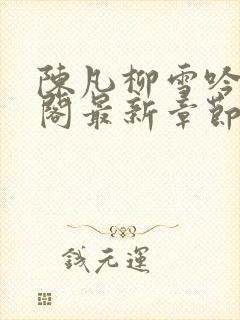 陳凡柳雪吟
閣最新章節
錢元運